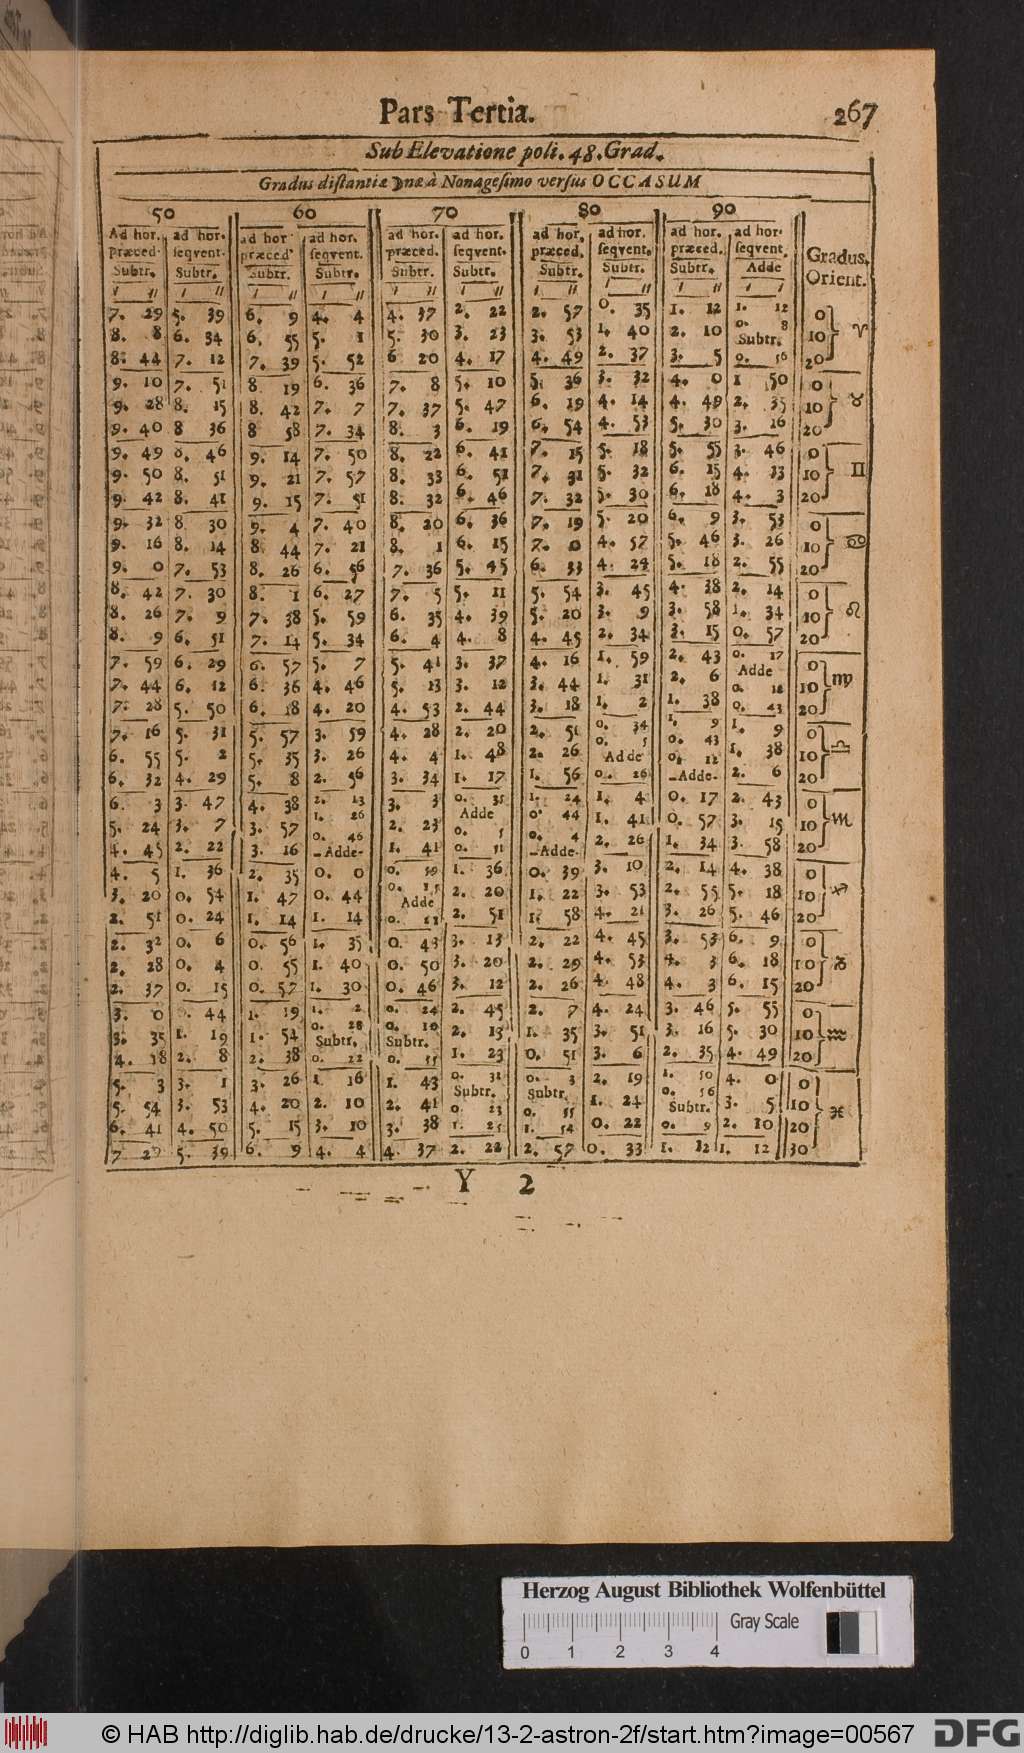 Pars Tertia. 267
Sub Elevatione poli. 48. Grad.
Gradus distantiæ ☽næ à Nonagesimo versus OCCASUM
50 60 70 80 90
Ad hor. præced. Subtr. ad hor. seqvent. Subtr. ad hor præced. Subtr. ad hor. seqvent. Subtr. ad hor. præced. Subtr. ad hor. seqvent. Subtr. ad hor. præced. Subtr. ad hor. seqvent. Subtr. ad hor. præced. Subtr. ad hor. seqvent. Adde Gradus. Orient.
7. 29 5. 39 6. 9 4. 4 4. 37 2. 22 2. 57 0. 35 1. 12 1. 12 0 ♈
8. 8 6. 34 6. 55 5. 1 5. 30 3. 23 3. 53 1. 40 2. 10 0. 8 Subtr. 10
8. 44 7. 12 7. 39 5. 52 6 20 4. 17 4. 49 2. 37 3. 5 0. 56 20
9. 10 7. 51 8. 19 6. 36 7. 8 5. 10 5. 36 3. 32 4. 0 1 50 0 ♉
9. 28 8. 15 8. 42 7. 7 7. 37 5. 47 6. 19 4. 14 4. 49 2. 35 10
9. 40 8 36 8 58 7. 34 8. 3 6. 19 6. 54 4. 53 5. 30 3. 16 20
9. 49 8. 46 9. 14 7. 50 8. 22 6. 41 7. 15 5. 18 5. 55 3. 46 0 ♊
9. 50 8. 51 9. 21 7. 57 8. 33 6. 51 7. 31 5. 32 6. 15 4. 13 10
9. 42 8. 41 9. 15 7. 51 8. 32 6. 46 7. 32 5. 30 6. 18 4. 3 20
9. 32 8. 30 9. 4 7. 40 8. 20 6. 36 7. 19 5. 20 6. 9 3. 53 0 ♋
9. 16 8. 14 8. 44 7. 21 8. 1 6. 15 7. 0 4. 57 5. 46 3. 26 10
9. 0 7. 53 8. 26 6. 56 7. 36 5. 45 6. 33 4. 24 5. 18 2. 55 20
8. 42 7. 30 8. 1 6. 27 7. 5 5. 11 5. 54 3. 45 4. 38 2. 14 0 ♌
8. 26 7. 9 7. 38 5. 59 6. 35 4. 39 5. 20 3. 9 3. 58 1. 34 10
8. 9 6. 51 7. 14 5. 34 6. 4 4. 8 4. 45 2. 34 3. 15 0. 57 20
7. 59 6. 29 6. 57 5. 7 5. 41 3. 37 4. 16 1. 59 2. 43 0. 17 0 ♍
7. 44 6. 12 6. 36 4. 46 5. 13 3. 12 3. 44 1. 31 2. 6 Adde 0. 18 10
7. 28 5. 50 6. 18 4. 20 4. 53 2. 44 3. 18 1. 2 1. 38 0. 43 20
7. 16 5. 31 5. 57 3. 59 4. 28 2. 20 2. 51 0. 34 1. 9 1. 9 0 ♎
6. 55 5. 2 5. 35 3. 26 4. 4 1. 48 2. 26 0. 5 Adde 0. 43 1. 38 10
6. 32 4. 29 5. 8 2. 56 3. 34 1. 17 1. 56 0. 26 0. 12 -Adde- 2. 6 20
6. 3 3. 47 4. 38 2. 13 3. 3 0. 35 1. 24 1. 4 0. 17 2. 43 0 ♏
5. 24 3. 7 3. 57 1. 26 2. 23 Adde 0. 5 0. 44 1. 41 0. 57 3. 15 10
4. 45 2. 22 3. 16 0. 46 -Adde- 1. 41 0. 51 0. 4 -Adde- 2. 26 1. 34 3. 58 20
4. 5 1. 36 2. 35 0. 0 0. 59 1. 36 0. 39 3. 10 2. 14 4. 38 0 ♐
3. 20 0. 54 1. 47 0. 44 0. 15 Adde 2. 20 1. 22 3. 53 2. 55 5. 18 10
2. 51 0. 24 1. 14 1. 14 0. 13 2. 51 1. 58 4. 21 3. 26 5. 46 20
2. 32 0. 6 0. 56 1. 35 0. 43 3. 13 2. 22 4. 45 3. 53 6. 9 0 ♑
2. 28 0. 4 0. 55 1. 40 0. 50 3. 20 2. 29 4. 53 4. 3 6. 18 10
2. 37 0. 15 0. 57 1. 30 0. 46 3. 12 2. 26 4. 48 4. 3 6. 15 20
3. 0 0. 44 1. 19 1. 2 0. 24 2. 45 2. 7 4. 24 3. 46 5. 55 0 ♒
3. 35 1. 19 1. 54 0. 28 Subtr. 0. 10 Subtr. 2. 13 1. 35 3. 51 3. 16 5. 30 10
4. 18 2. 8 2. 38 0. 22 0. 35 1. 23 0. 51 3. 6 2. 35 4. 49 20
5. 3 3. 1 3. 26 1. 16 1. 43 0. 31 0. 3 2. 19 1. 50 4. 0 0 ♓
5. 54 3. 53 4. 20 2. 10 2. 41 Subtr. 0. 23 Subtr. 0. 55 1. 24 0. 56 Subtr. 3. 5 10
6. 41 4. 50 5. 15 3. 10 3. 38 1. 25 1. 54 0. 22 0. 9 2. 10 20
7 29 5. 39 6. 9 4. 4 4. 37 2. 22 2. 57 0. 33 1. 12 1. 12 30
Y 2
Herzog August Bibliothek Wolfenbüttel
Gray Scale
0 1 2 3 4
© HAB http://diglib.hab.de/drucke/13-2-astron-2f/start.htm?image=00567 DFG